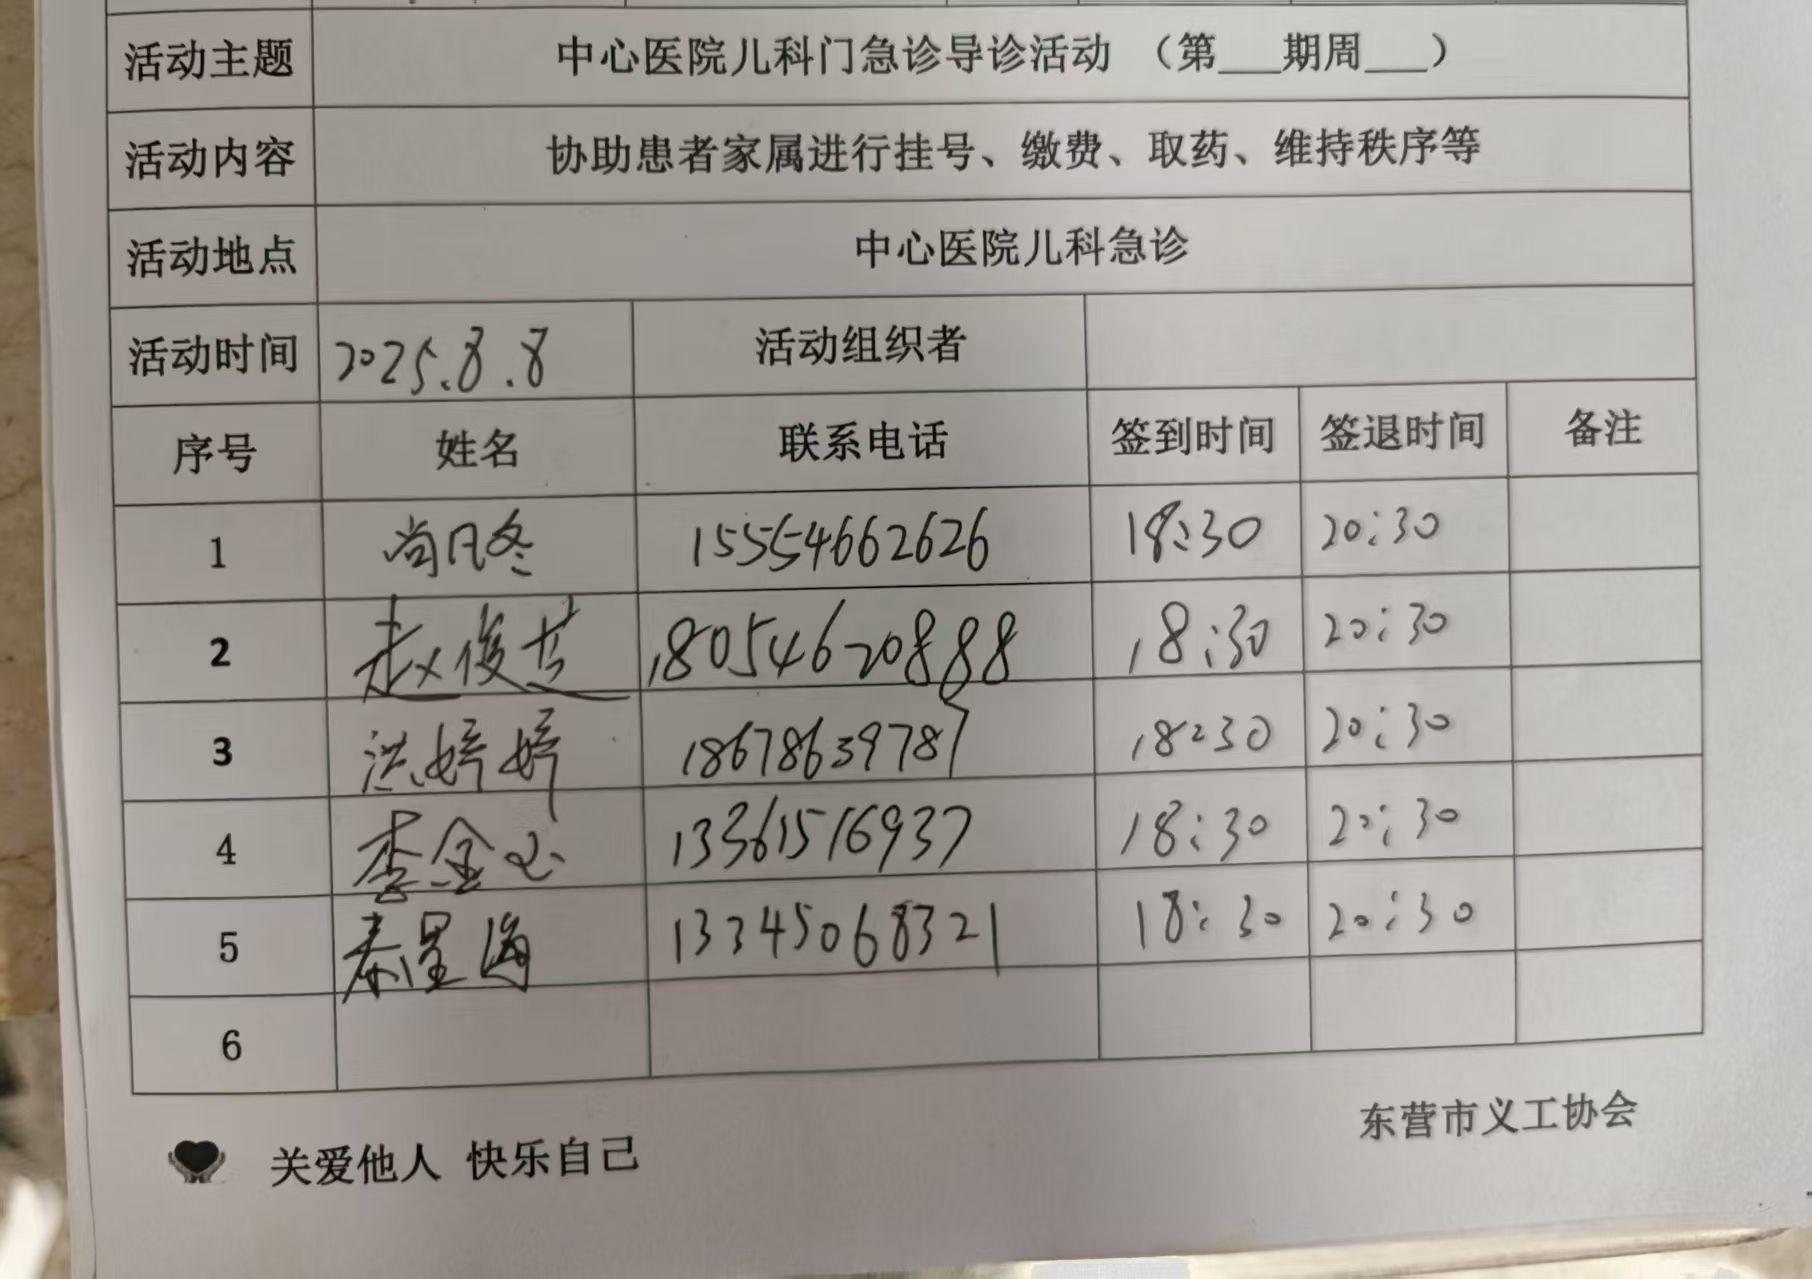 活动主题 中心医院儿科门急诊导诊活动 （第___期周___）
活动内容 协助患者家属进行挂号、缴费、取药、维持秩序等
活动地点 中心医院儿科急诊
活动时间 2025.8.8 活动组织者
序号 姓名 联系电话 签到时间 签退时间 备注
1 尚凡冬 15554662626 18:30 20:30
2 赵俊芝 18054620888 18:30 20:30
3 洪婷婷 18678639787 18:30 20:30
4 李金 13361516937 18:30 20:30
5 秦星海 13345068321 18:30 20:30
6
关爱他人 快乐自己
东营市义工协会